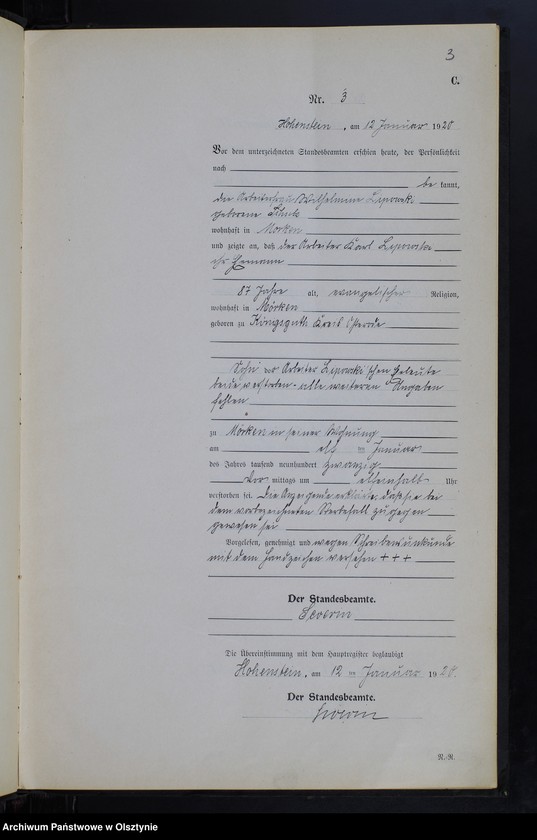 3
C.
Nr. 3
Hohenstein, am 12 Januar 1920
Vor dem unterzeichneten Standesbeamten erschien heute, der Persönlichkeit
nach
be kannt,
die Arbeiterfrau Wilhelmine
geborene
wohnhaft in Mörken
und zeigte an, daß der Arbeiter Karl
ihr Ehemann
87 Jahre alt, evangelischer Religion,
wohnhaft in Mörken
geboren zu Königsguth Kreis Osterode
Sohn der Arbeiter schen Eheleute
beide verstorben - alle weiteren Angaben
fehlen
zu Mörken in seiner Wohnung
am elf ten Januar
des Jahres tausend neunhundert zwanzig
Vor mittags um elfeinhalb Uhr
verstorben sei. Die Anzeigende erklärte, dass sie bei
dem vorbezeichneten Sterbefall zugegen
gewesen sei
Vorgelesen, genehmigt und wegen Schreibensunkunde
mit dem Handzeichen versehen + + +
Der Standesbeamte.
Die Übereinstimmung mit dem Hauptregister beglaubigt
Hohenstein, am 12 ten Januar 1920.
Der Standesbeamte.
N.-R.
Archiwum Państwowe w Olsztynie